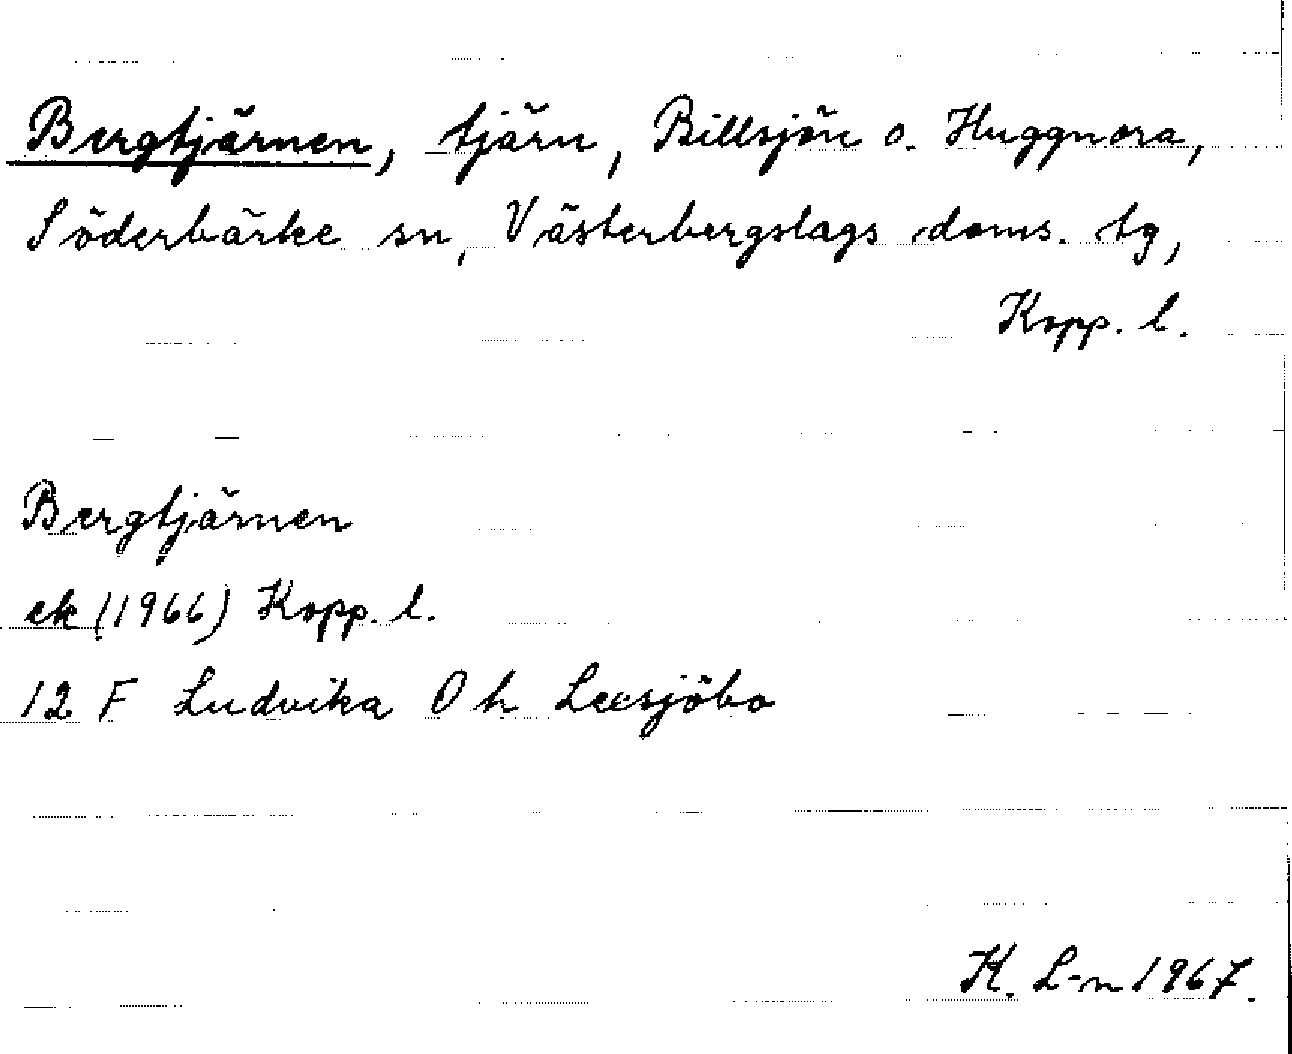 Bergtjärnen, tjärn, Billsjön o. Huggnora,
Söderbärke sn, Västerbergslags doms. tg,
Kopp. l.
Bergtjärnen
ek (1966) Kopp. l.
12 F Ludvika 0 h Leesjöbo
K. L-n 1967.